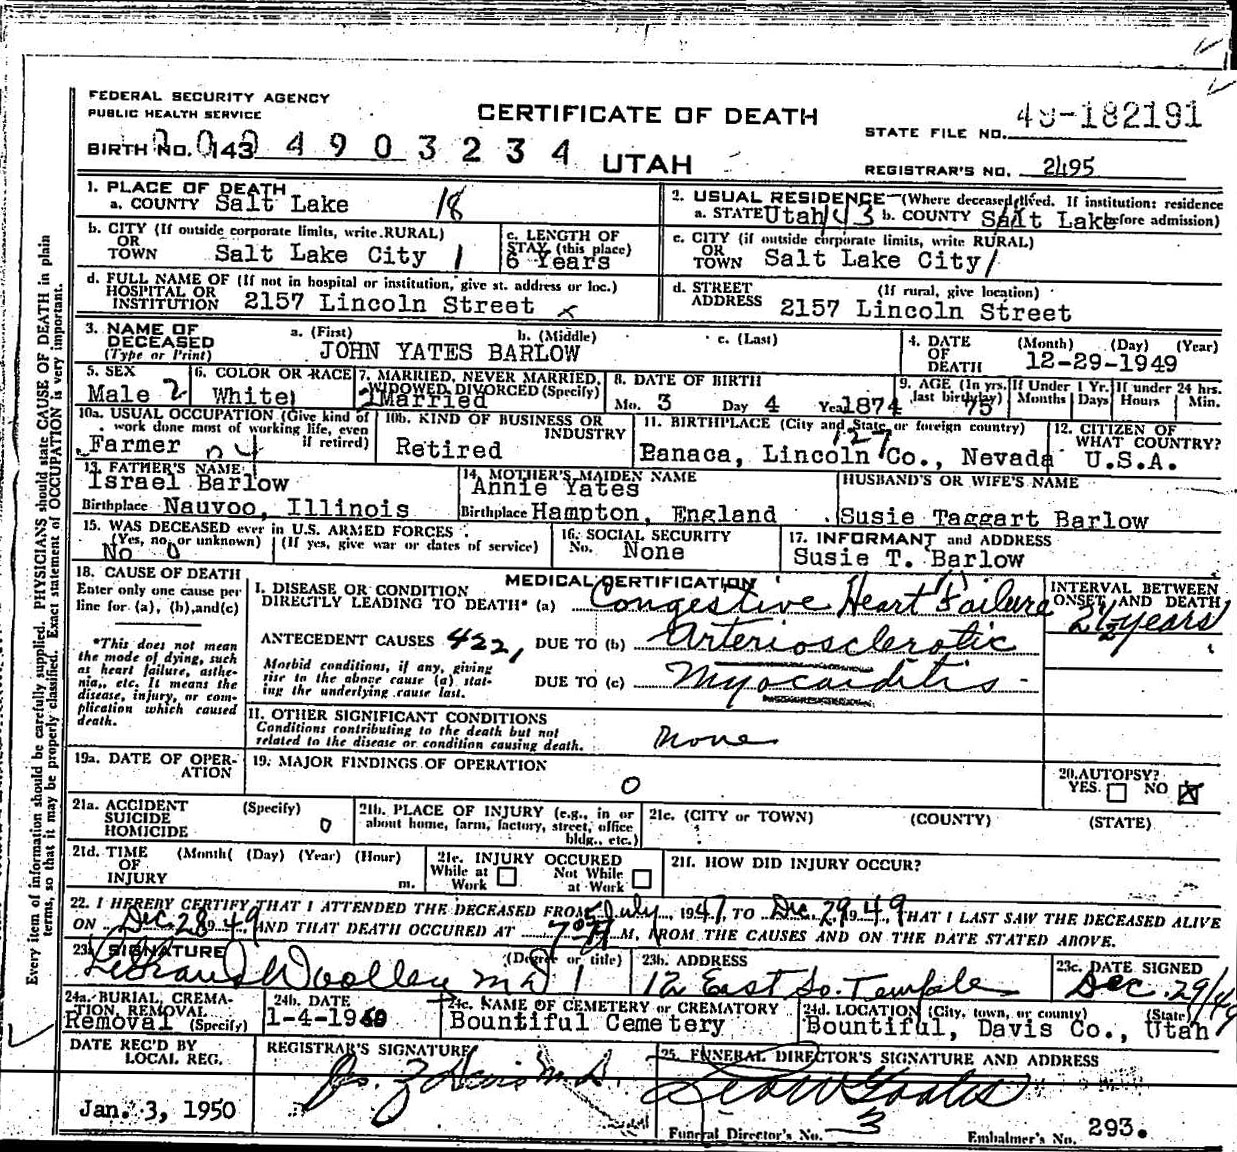 FEDERAL SECURITY AGENCY
PUBLIC HEALTH SERVICE
CERTIFICATE OF DEATH
STATE FILE NO. 49-182191
BIRTH NO. 143 4903234 UTAH
REGISTRAR'S NO. 2495
1. PLACE OF DEATH
a. COUNTY Salt Lake 18
2. USUAL RESIDENCE (Where deceased lived. If institution: residence before admission)
a. STATE Utah b. COUNTY Salt Lake
b. CITY (If outside corporate limits, write RURAL)
OR
TOWN Salt Lake City 1
c. LENGTH OF
STAY (this place)
6 Years
c. CITY (if outside corporate limits, write RURAL)
OR
TOWN Salt Lake City /
d. FULL NAME OF (If not in hospital or institution, give st. address or loc.)
HOSPITAL OR
INSTITUTION 2157 Lincoln Street x
d. STREET (If rural, give location)
ADDRESS 2157 Lincoln Street
3. NAME OF
DECEASED
(Type or Print)
a. (First) b. (Middle) c. (Last)
JOHN YATES BARLOW
4. DATE
OF
DEATH
(Month) (Day) (Year)
12-29-1949
5. SEX
Male 2
6. COLOR OR RACE
White
7. MARRIED, NEVER MARRIED,
WIDOWED, DIVORCED (Specify)
Married
8. DATE OF BIRTH
Mo. 3 Day 4 Year 1874
9. AGE (In yrs.
last birthday) 75
If Under 1 Yr.
Months Days
If under 24 hrs.
Hours Min.
10a. USUAL OCCUPATION (Give kind of
work done most of working life, even
if retired)
Farmer
10b. KIND OF BUSINESS OR
INDUSTRY
Retired
11. BIRTHPLACE (City and State or foreign country)
Panaca, Lincoln Co., Nevada
12. CITIZEN OF
WHAT COUNTRY?
U.S.A.
13. FATHER'S NAME
Israel Barlow
Birthplace Nauvoo, Illinois
14. MOTHER'S MAIDEN NAME
Annie Yates
Birthplace Hampton, England
HUSBAND'S OR WIFE'S NAME
Susie Taggart Barlow
15. WAS DECEASED ever in U.S. ARMED FORCES
(Yes, no, or unknown) (If yes, give war or dates of service)
No 0
16. SOCIAL SECURITY
No. None
17. INFORMANT and ADDRESS
Susie T. Barlow
18. CAUSE OF DEATH
Enter only one cause per
line for (a), (b), and (c)
*This does not mean
the mode of dying, such
as heart failure, asthe-
nia, etc. It means the
disease, injury, or com-
plication which caused
death.
MEDICAL CERTIFICATION
I. DISEASE OR CONDITION
DIRECTLY LEADING TO DEATH* (a) Congestive Heart Failure
INTERVAL BETWEEN
ONSET AND DEATH
2 1/2 years
ANTECEDENT CAUSES 422, DUE TO (b) Arteriosclerotic
Morbid conditions, if any, giving
rise to the above cause (a) stat-
ing the underlying cause last.
DUE TO (c) Myocarditis
II. OTHER SIGNIFICANT CONDITIONS
Conditions contributing to the death but not
related to the disease or condition causing death.
None
19a. DATE OF OPER-
ATION
19. MAJOR FINDINGS OF OPERATION
0
20. AUTOPSY?
YES. NO
21a. ACCIDENT (Specify)
SUICIDE
HOMICIDE 0
21b. PLACE OF INJURY (e.g., in or
about home, farm, factory, street, office
bldg., etc.)
21c. (CITY or TOWN) (COUNTY) (STATE)
21d. TIME (Month( (Day) (Year) (Hour)
OF
INJURY m.
21e. INJURY OCCURED
While at Work Not While at Work
21f. HOW DID INJURY OCCUR?
22. I HEREBY CERTIFY THAT I ATTENDED THE DECEASED FROM July, 1947, TO Dec. 29, 1949, THAT I LAST SAW THE DECEASED ALIVE
ON Dec 28 1949, AND THAT DEATH OCCURED AT M, FROM THE CAUSES AND ON THE DATE STATED ABOVE.
23a. SIGNATURE (Degree or title)
Woolley M D
23b. ADDRESS
12 East So. Temple
23c. DATE SIGNED
Dec. 29/49
24a. BURIAL, CREMA-
TION, REMOVAL
Removal (Specify)
24b. DATE
24c. NAME OF CEMETERY or CREMATORY
Bountiful Cemetery
24d. LOCATION (City, town, or county) (State)
Bountiful, Davis Co., Utah
DATE REC'D BY
LOCAL REG.
Jan. 3, 1950
REGISTRAR'S SIGNATURE
25. FUNERAL DIRECTOR'S SIGNATURE AND ADDRESS
Funeral Director's No. 3
Embalmer's No. 293.
Every item of information should be carefully supplied. PHYSICIANS should state CAUSE OF DEATH in plain
terms, so that it may be properly classified. Exact statement of OCCUPATION is very important.